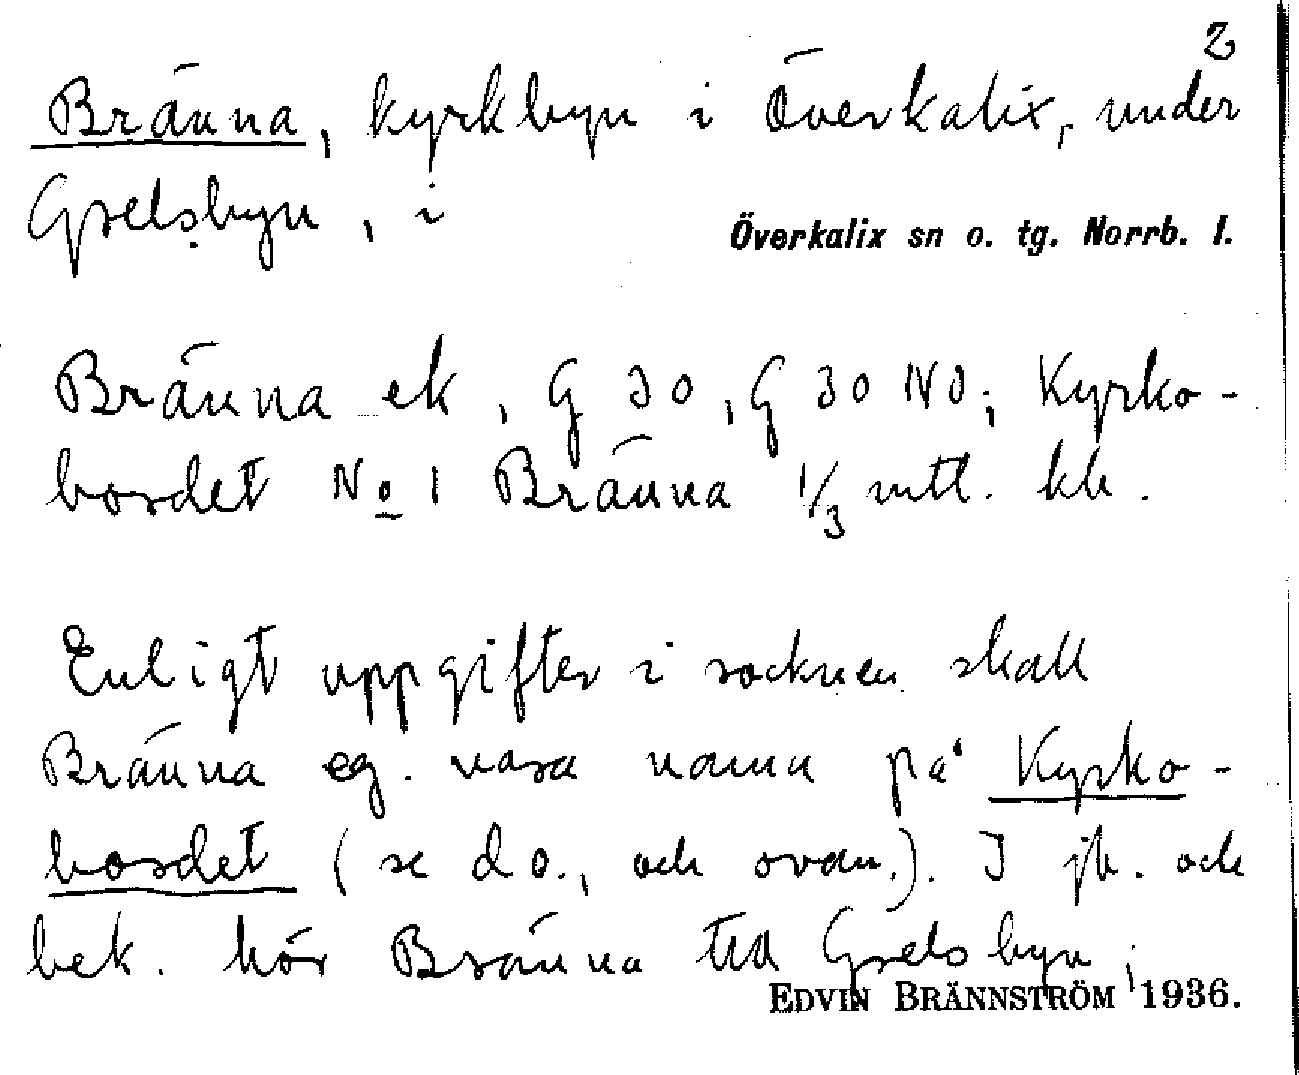 2
Bränna, kyrkbyn i Överkalix, under
Grelsbyn, i
Överkalix sn o. tg. Norrb. l.
Bränna ek, G 30, G 30 NO; Kyrko-
bordet No 1 Bränna 1/3 mtl. kb.
Enligt uppgifter i socknen skall
Bränna eg. vara namn på Kyrko-
bordet (se d o., och ovan.). I jb. och
bek. hör Bränna till Grelsbyn;
EDVIN BRÄNNSTRÖM 1936.